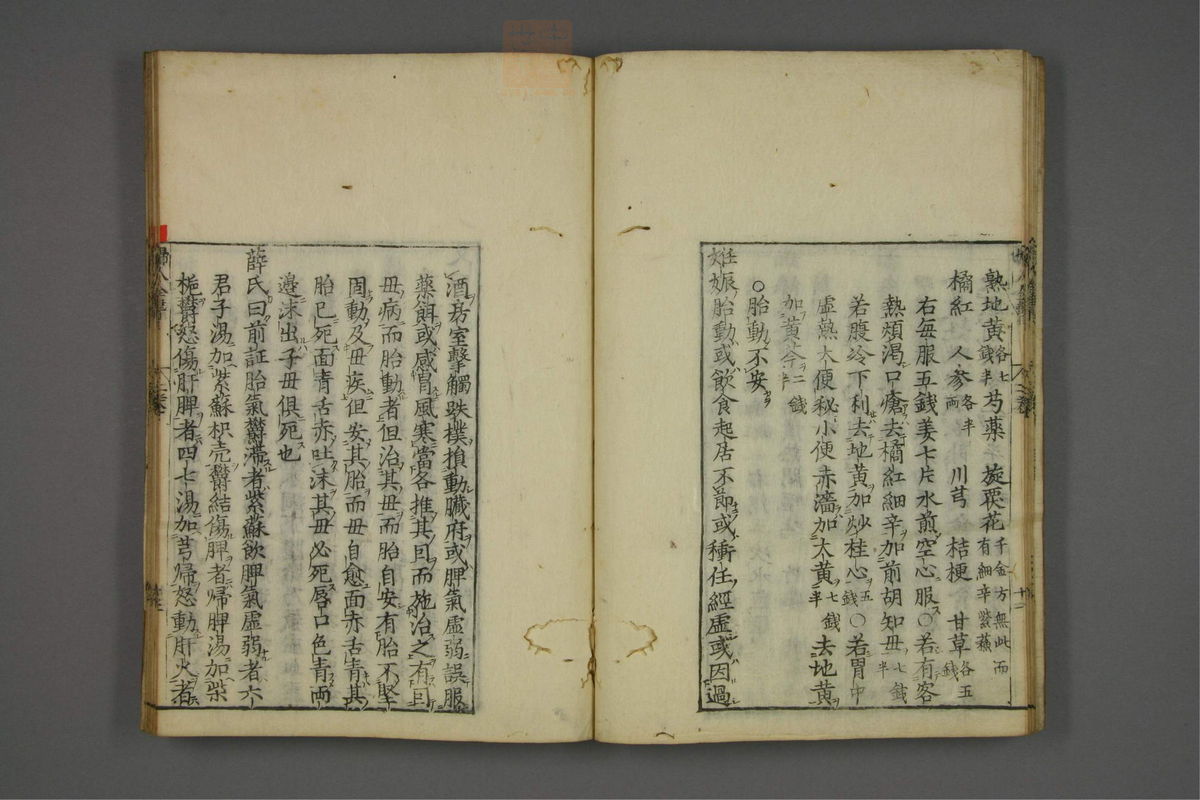 熟地黄各七錢半 芍藥 旋覆花千金方無此而有細辛紫蘇
橘紅 人参各半兩 川芎 桔梗 甘草各五錢
右毎服五錢姜七片水煎空心服○若有客
熱煩渇口瘡去橘紅細辛加前胡知母七錢半
若腹冷下利去地黄加炒桂心五錢○若胃中
虚熱大便秘小便赤濇加大黄七錢半去地黄
加黄芩二錢半
○胎動不安
妊娠胎動或飲食起居不節或衝任經虚或因過
酒房室擊觸跌撲損動臓府或脾氣虚弱誤服
藥餌或感冒風寒當各推其囙而施治之有囙
毋病而胎動者但治其毋而胎自安有胎不堅
固動及毋疾但安其胎而毋自愈面赤舌青其
胎已死面青舌赤吐沫其毋必死唇口色青両
邉沫出子毋俱死也
薛氏曰前証胎氣欝滞者紫蘇飲脾氣虚弱者六
君子湯加紫蘇枳壳欝結傷脾者帰脾湯加柴
梔欝怒傷肝脾者四七湯加芎帰怒動肝火者